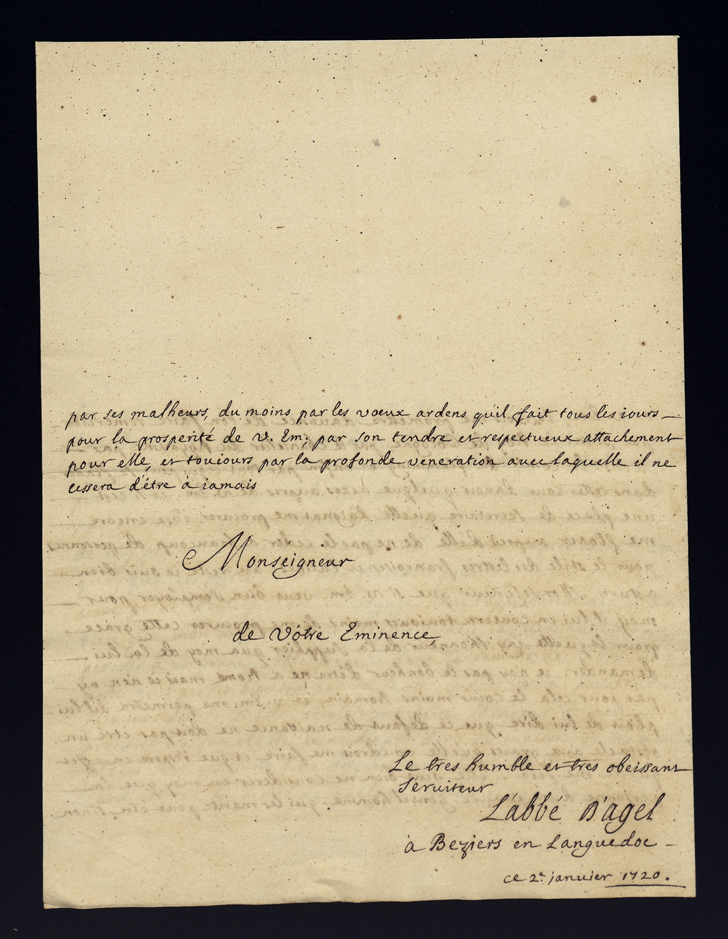 par ses malheurs, du moins par les vœux ardens qu'il fait tous les iours
pour la prosperité de V. Em; par son tendre et respectueux attachement
pour elle, et touiours par la profonde veneration avec laquelle il ne
cessera d'étre à iamais
Monseigneur
de Vótre Eminence,
Le tres humble et tres obeissant
serviteur
L'abbé D'agel
à Beziers en Languedoc
ce 2e janvier 1720.